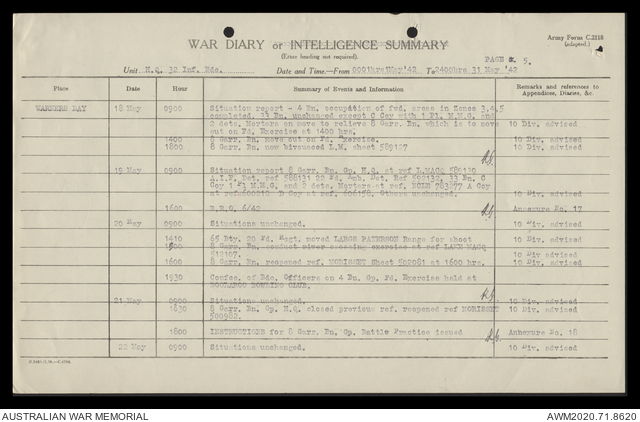 WAR DIARY or INTELLIGENCE SUMMARY
Army Form C.2118
(adapted.)
(Erase heading not required).
PAGE 5.
Unit H.Q. 32 Inf. Bde. Date and Time.—From 0001hrs 1 May '42 To 2400hrs 31 May '42
Place Date Hour Summary of Events and Information Remarks and references to Appendices, Diaries, &c.
WARNERS BAY 18 May 0900 Situation report - 4 Bn. occupation of fwd. areas in Zones 3,4,5
completed. 33 Bn. unchanged except C Coy with 1 Pl. M.M.G. and
2 dets. Mortars on move to relieve 8 Garr. Bn. which is to move 10 Div. advised
out on Fd. Exercise at 1400 hrs.
1400 8 Garr. Bn. move out on Fd. Exercise. 10 Div. advised
1800 8 Garr. Bn. now bivouaced L.M. sheet 589127 10 Div. advised
19 May 0900 Situation report 8 Garr. Bn. Gp. H.Q. at ref L.MACQ 586130
A.I.F. Det. ref 588131 22 Fd. Amb. Det. Ref 592132, 33 Bn. C
Coy 1 Pl M.M.G. and 2 dets. Mortars at ref. A Coy
at ref. B Coy at ref. Others unchanged. 10 Div. advised
1600 6/42 Annexure No. 17
20 May 0900 Situations unchanged. 10 Div. advised
1410 65 Bty. 20 Fd. Regt. moved LARGS PATERSON Range for shoot 10 Div. advised
8 Garr. Bn. conduct river crossing exercise at ref LAKE MACQ
512107. 10 Div. advised
1600 8 Garr. Bn. reopened ref. MORISSET Sheet 502081 at 1600 hrs. 10 Div. advised
1930 Confce. of Bde. Officers on 4 Bn. Gp. Fd. Exercise held at
BOOLAROO BOWLING CLUB.
21 May 0900 Situations unchanged. 10 Div. advised
1630 8 Garr. Bn. Gp H.Q. closed previous ref. reopened ref MORISSET 10 Div. advised
500982.
1800 INSTRUCTIONS for 8 Garr. Bn. Gp. Battle Practice issued Annexure No. 18
22 May 0900 Situations unchanged. 10 Div. advised
AUSTRALIAN WAR MEMORIAL
AWM2020.71.8620